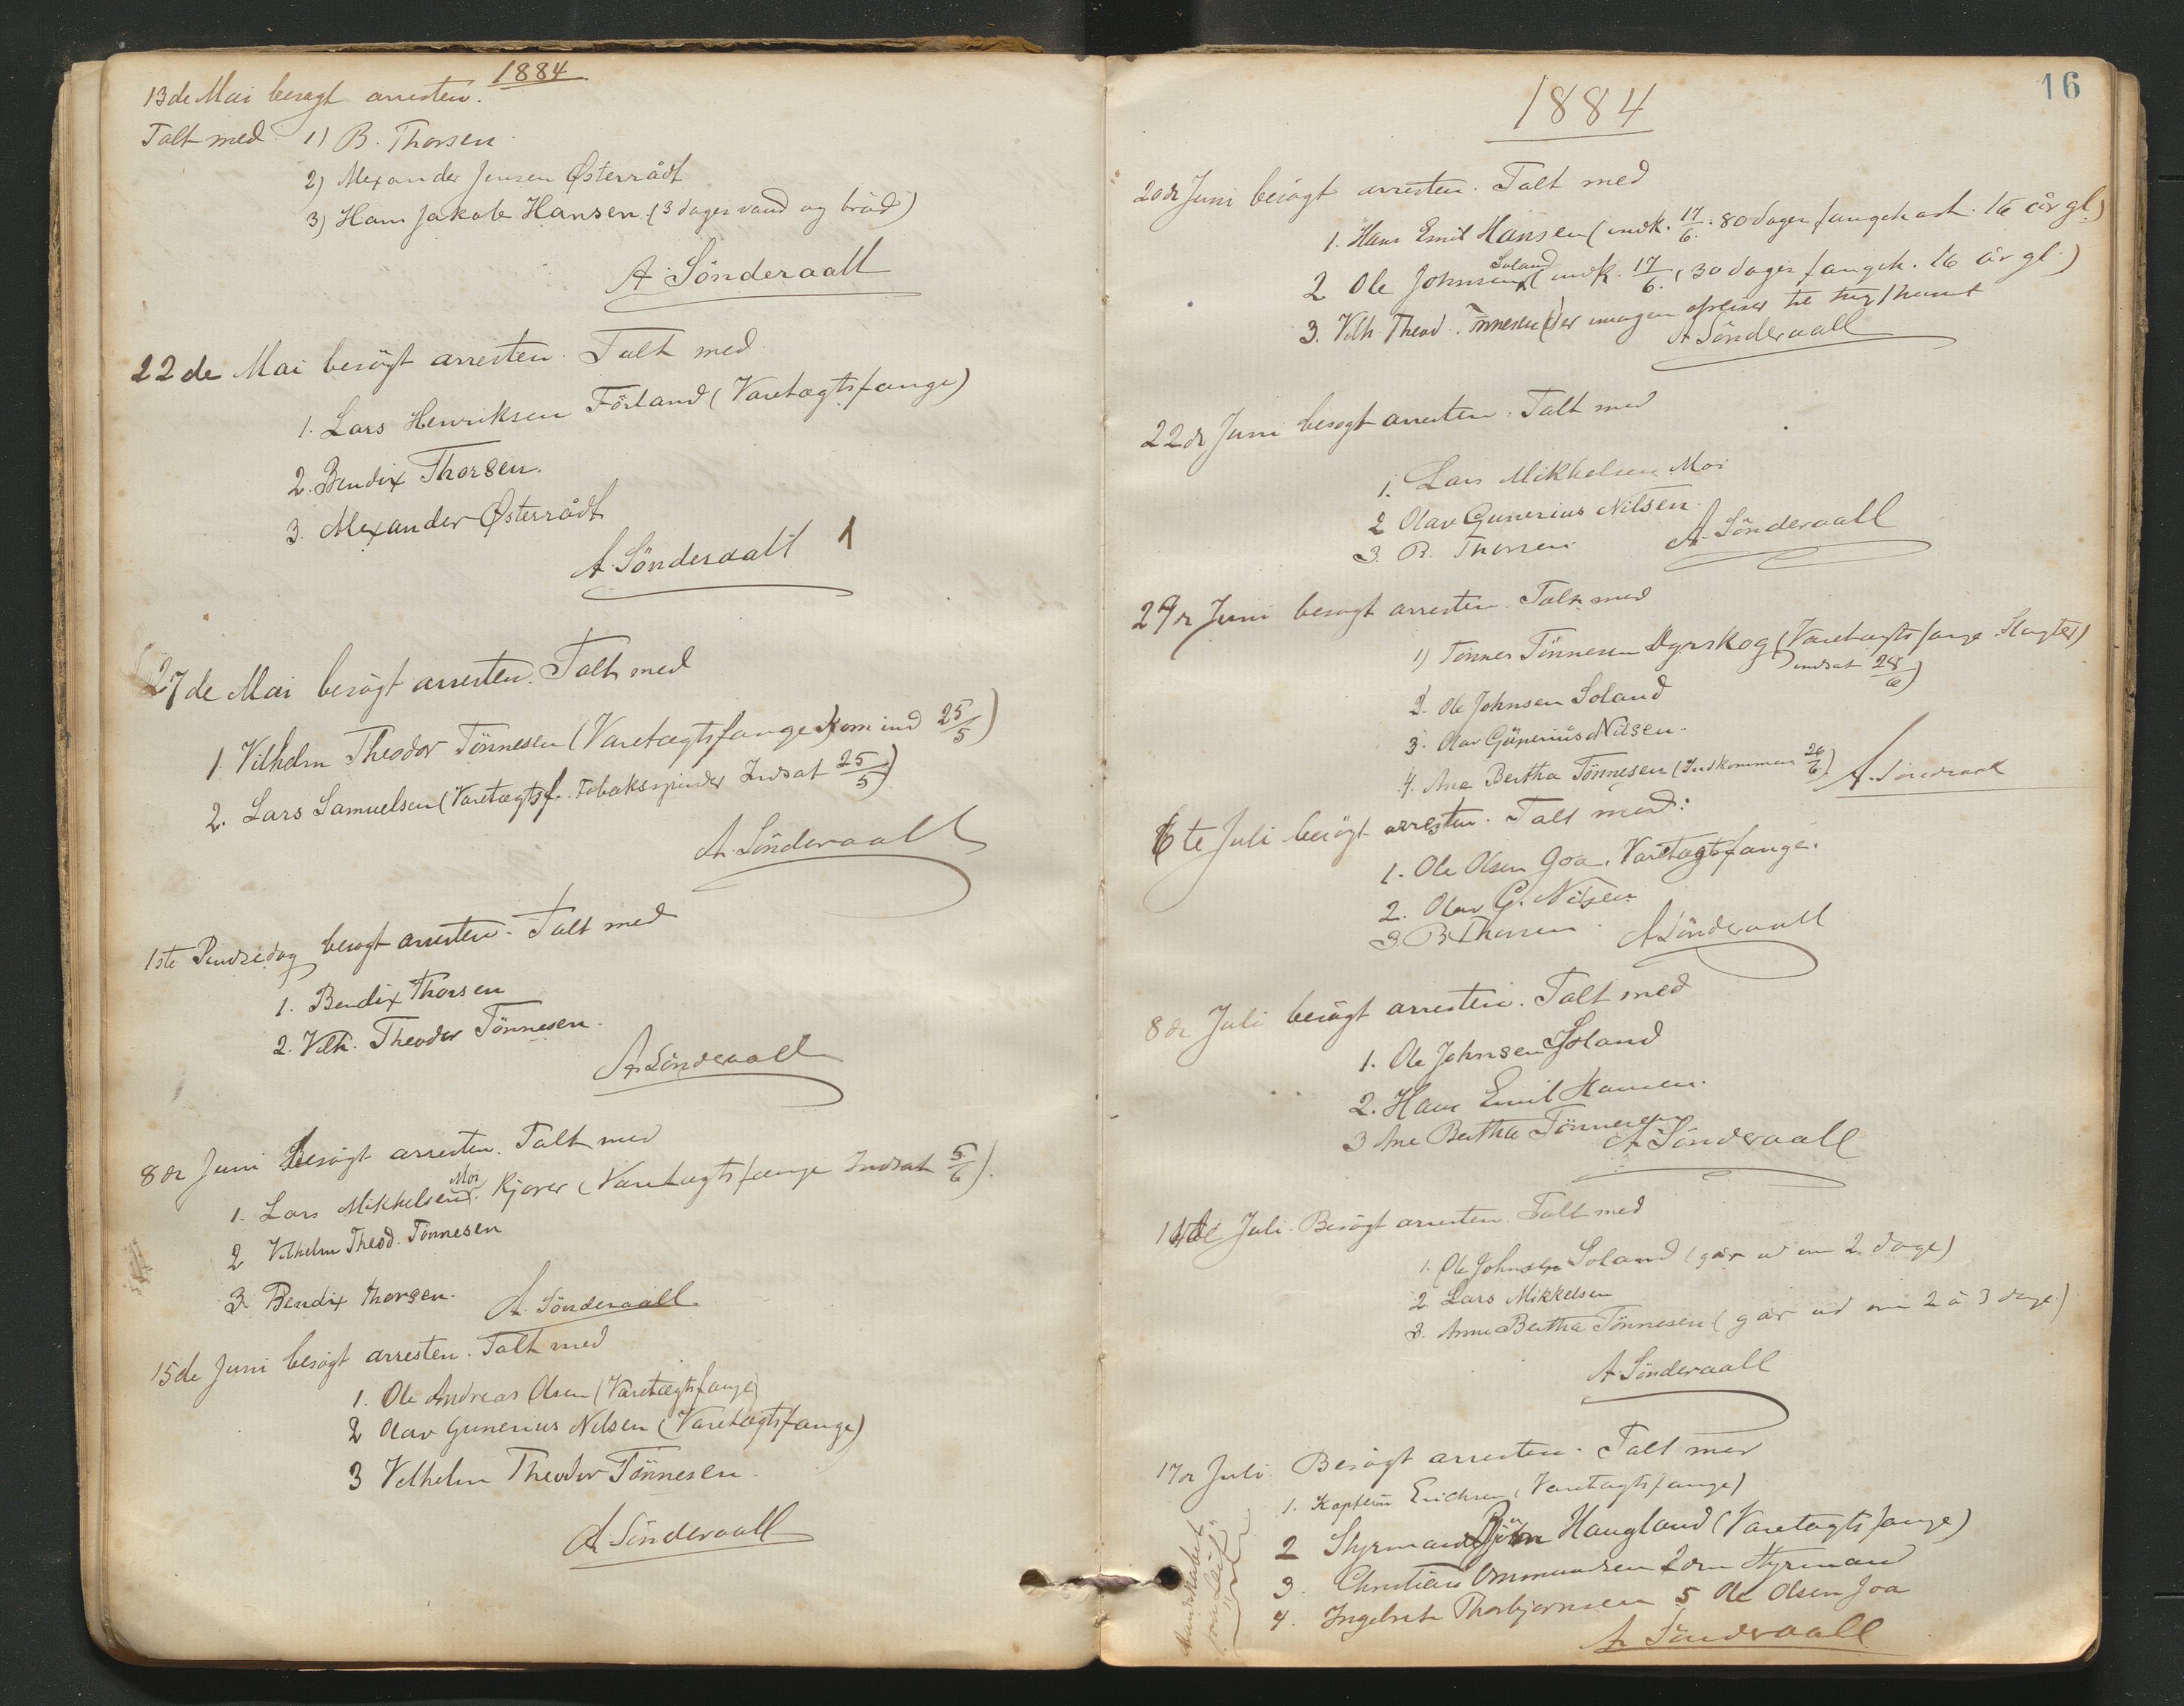 1884
13de Mai besøgt arresten.
Talt med 1) B. Thorsen
2) Alexander Jensen Østerrådt
3) Hans Jakob Hansen (3 dages vand og brød)
A. Sönderaall
22de Mai besögt arresten. Talt med
1. Lars Henriksen Förland (Varetægtsfange)
2. Bendix Thorsen.
3. Alexander Østerrådt
A. Sönderaall 1
27de Mai besögt arresten. Talt med
1 Vilhelm Theodor Tönnesen (Varetægtsfange) kom ind 25/5)
2. Lars Samuelsen (Varetægtsf. Tobakspinder Indsat 25/5)
A. Sönderaall
1ste Pindsedag besøgt arresten. Talt med
1. Bendix Thorsen
2. Vilh. Theodor Tönnesen.
A. Sönderaall
8de Juni Besögt arresten. Talt med
1. Lars Mikkelsen Moi. Kjører (Varetægtsfange Indsat 5/6).
2 Vilhelm Theod. Tönnesen
3. Bendix Thorsen.
A. Sönderaall
15de Juni besögt arresten. Talt med
1. Ole Andreas Olsen (Varetægtsfange)
2 Olav Gunerius Nilsen (Varetægtsfange)
3 Vilhelm Theodor Tönnesen.
A. Sönderaall
16
1884
20de Juni besögt arresten. Talt med
1. Hans Emil Hansen (indk. 17/6. 80 dages fangsk. 16 år gl.)
2 Ole Johnsen Soland (indk. 17/6. (30 dages fangsk. 16 år gl.)
3. Vilh. Theod. Tönnesen (der imorgen afreiser til
A. Sönderaall
22de Juni besøgt arresten. Talt med
1. Lars Mikkelsen Moi
2 Olav Gunerius Nilsen.
3. B. Thorsen
A. Sönderaall
29de Juni besøgt arresten. Talt med
1) Tönnes Tönnesen Dyrskog (Varetægtsfange. Slagter)
indsat 28/6)
2. Ole Johnsen Soland
3. Olav Gunerius Nilsen.
4. Ane Bertha Tönnesen (Indkommen 26/6)
A. Sönderaall
6te Juli besögt arresten. Talt med:
1. Ole Olsen Goa. Varetægtsfange.
2. Olav G. Nilsen
3. B Thorsen.
A. Sönderaall
8de Juli besögt arresten. Talt med
1. Ole Johnsen Soland
2. Hans Emil Hansen.
3 Ane Bertha Tönnesen
A. Sönderaall
14de Juli. Besögt arresten. Talt med
1. Ole Johnsen Soland (går ud om 2 dage)
2 Lars Mikkelsen
3. Anne Bertha Tönnesen (går ud om 2 à 3 dage)
A. Sönderaall
17de Juli. Besögt arresten. Talt med
1. Kaptein Erichsen (Varetagtsfange)
2 Styrmand Björn Haugland (Varetagtsfange)
3. Christian Ommundsen 2den Styrmand
4. Ingebret Thorbjornsen 5 Ole Olsen Joa
A. Sönderaall
Mandskabet